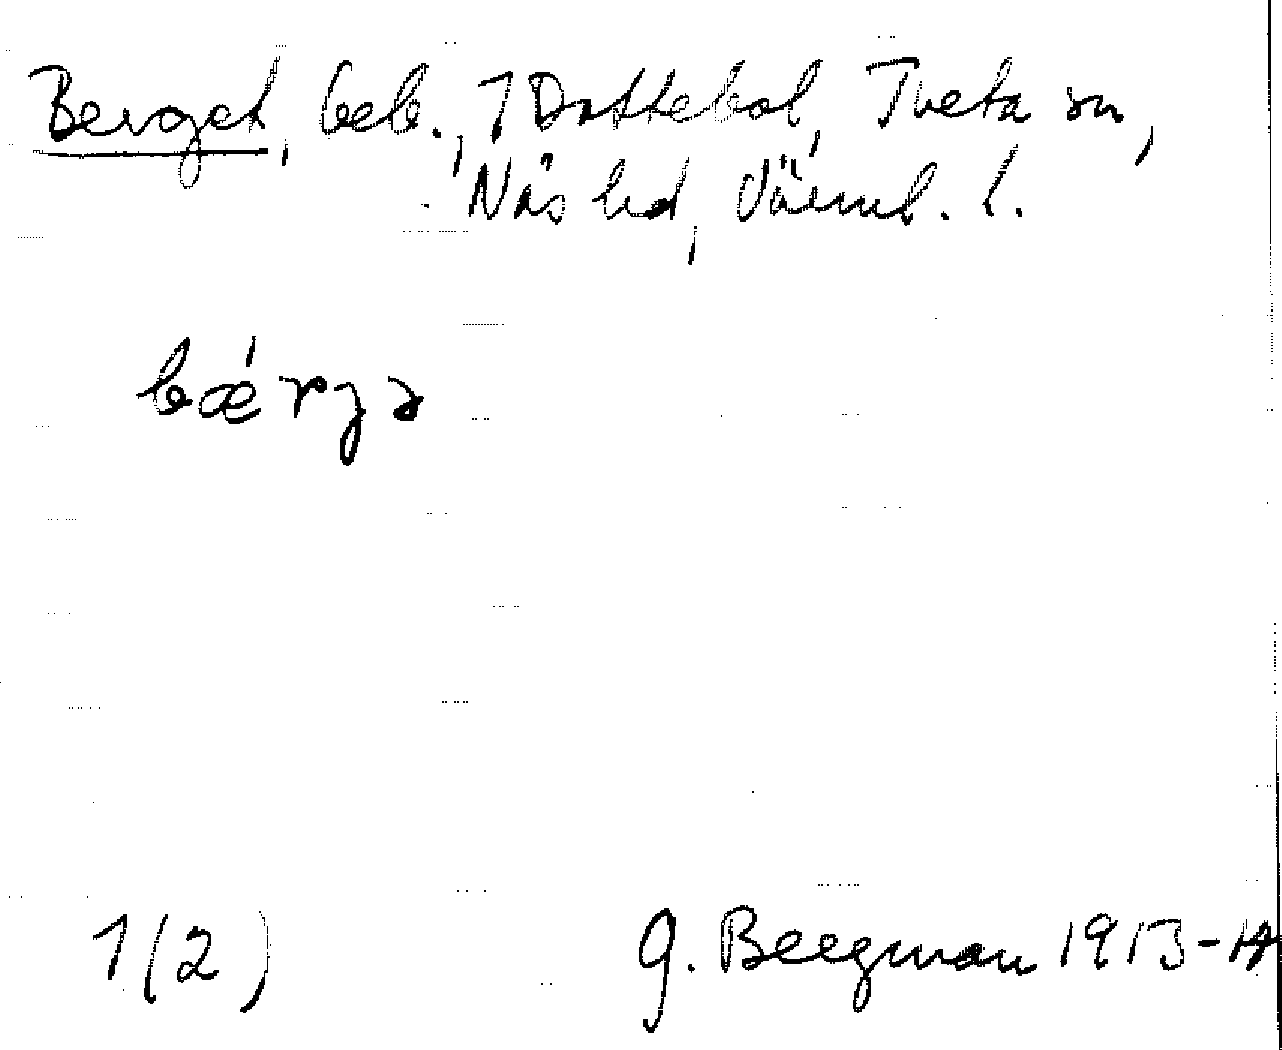 Berget, beb., 1 Dottebol, Tveta sn,
Näs hd, Värml. l.
bærgə
1(2)
G. Bergman 1913-14